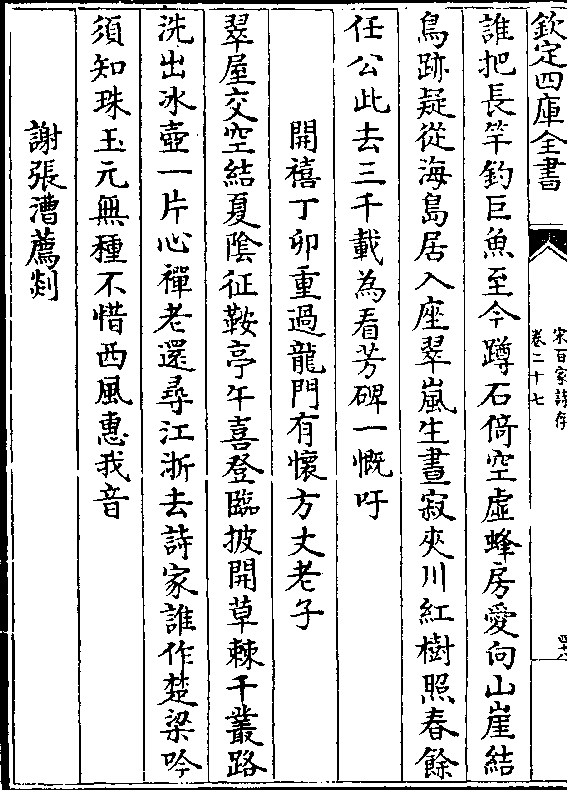 欽定四庫全書
宋百家詩存
卷二十七
誰把長竿釣巨魚至今蹲石倚空虛蜂房愛向山崖結
鳥跡疑從海島居入座翠嵐生晝寂夾川紅樹照春餘
任公此去三千載為看芳碑一慨吁
開禧丁卯重過龍門有懷方丈老子
翠屋交空結夏陰征鞍亭午喜登臨披開草棘千叢路
洗出冰壺一片心禪老還尋江浙去詩家誰作楚梁吟
須知珠玉元無種不惜西風惠我音
謝張漕薦剡